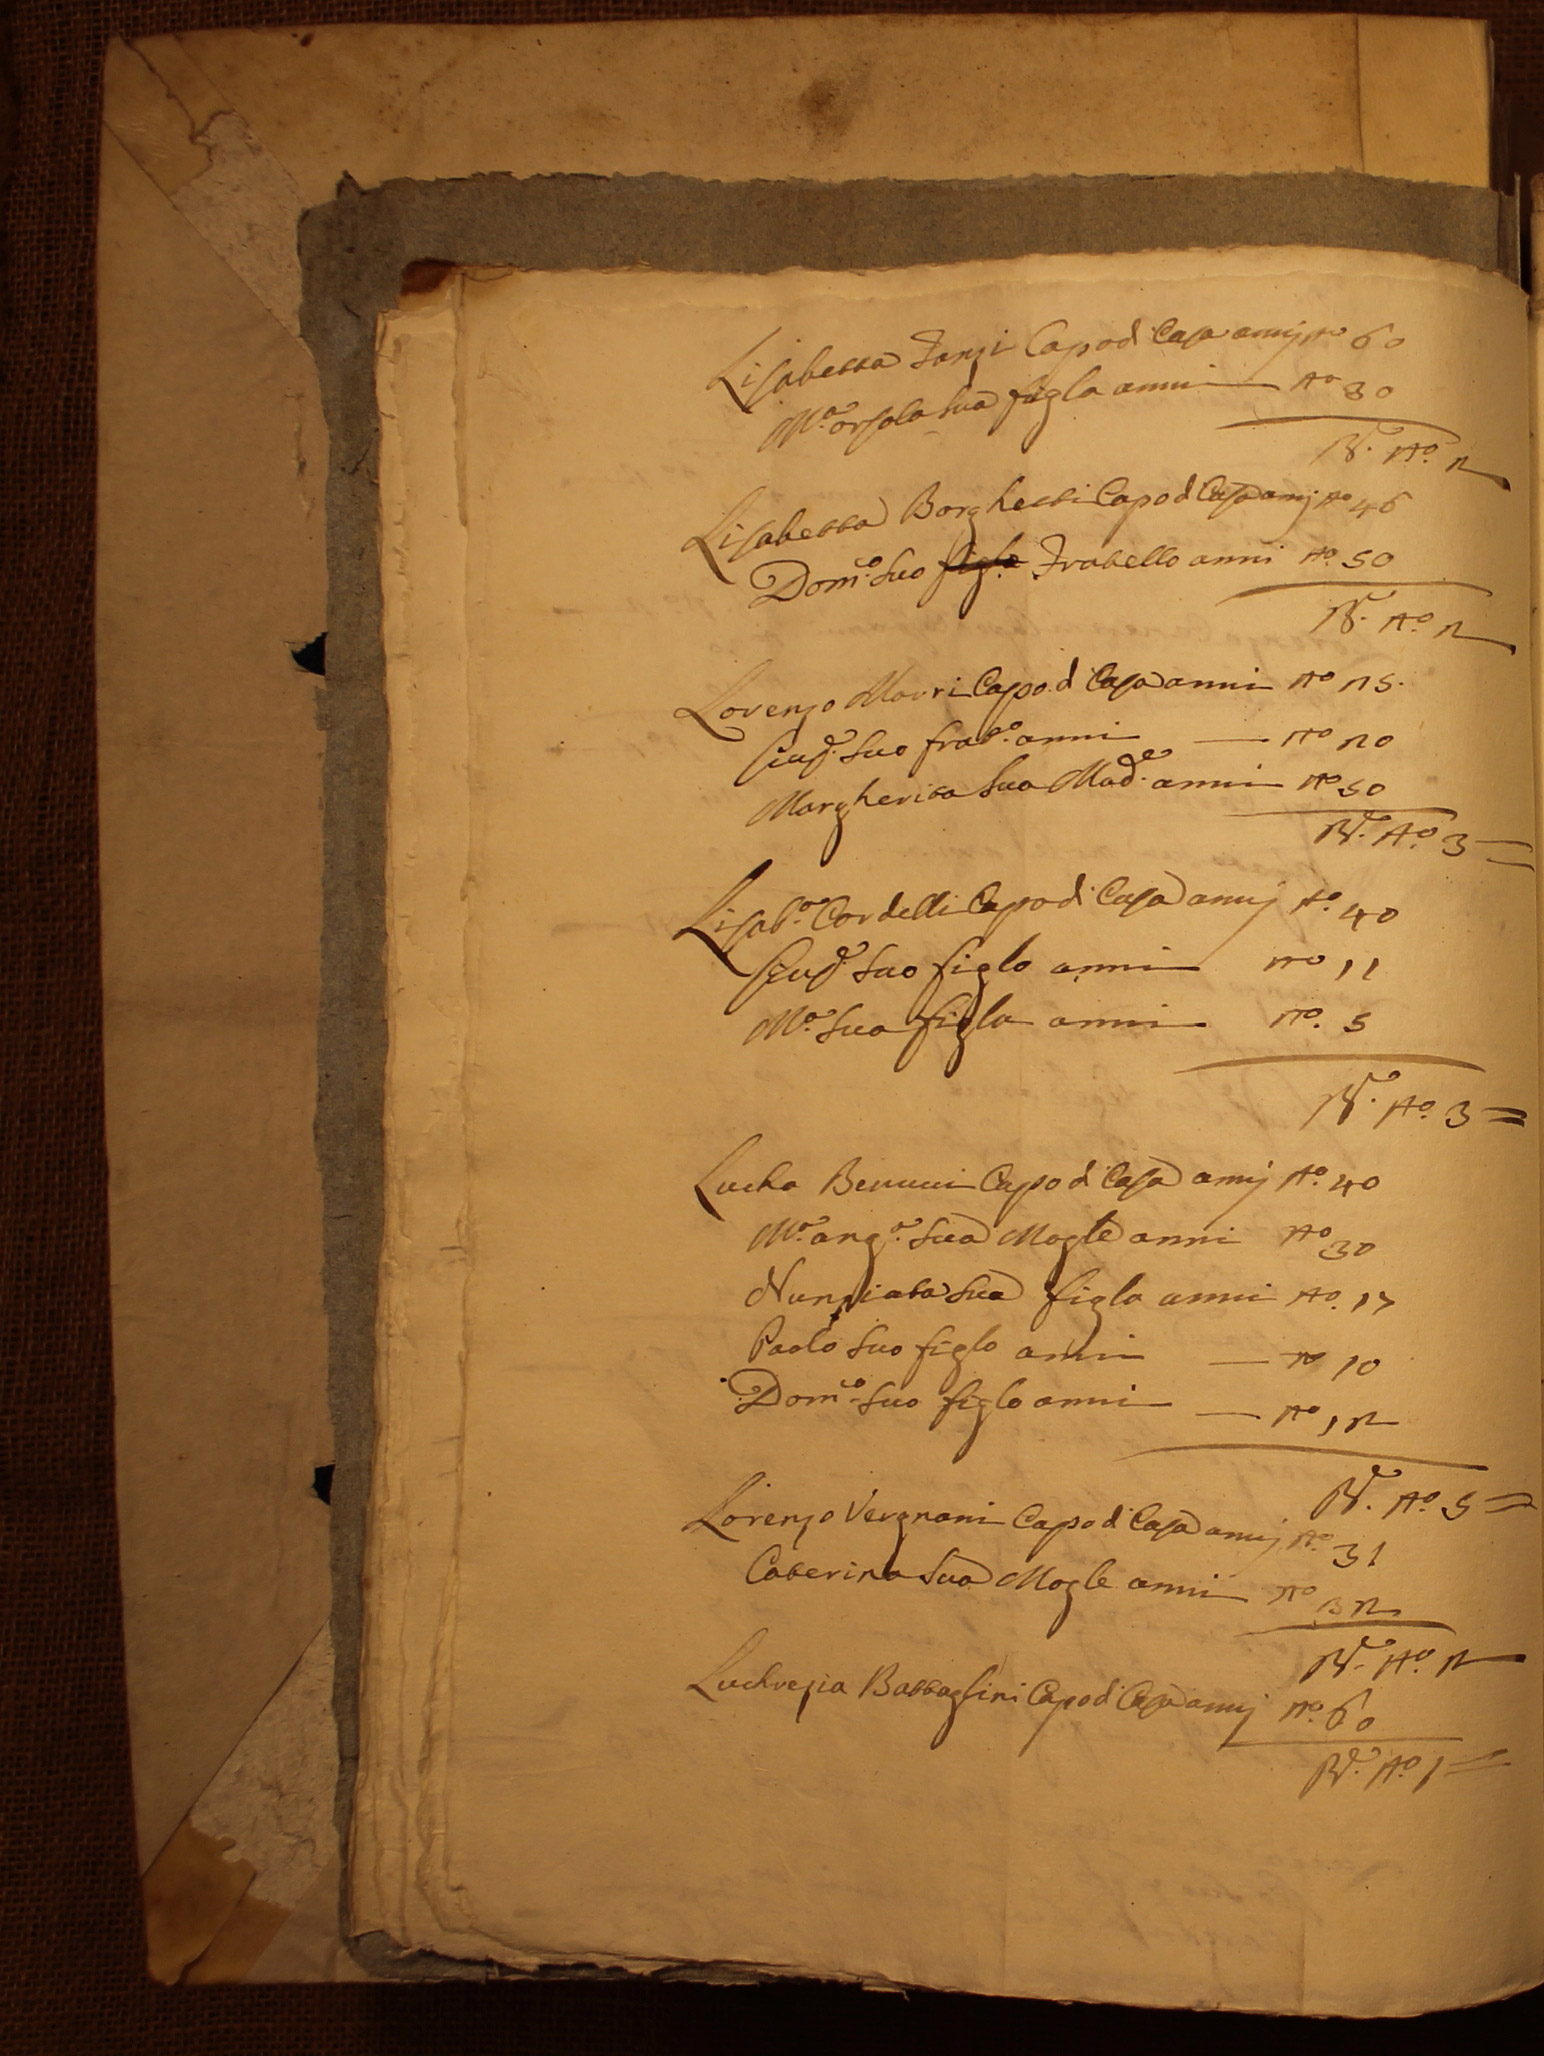 Lisabetta Fanzi Capo d Casa annj no 60
Ma. orsola Sua figla anni no 30
No. 2
Lisabetta Borghetti Capo d Casa annj no 46
Domco. Suo figlo Fratello anni no. 50
No. 2
Lorenzo Morri Capo. d Casa anni no 25.
Suo frato. anni no 20
Margherita Sua Made. anni no 50
No. 3
Lisaba. Cordelli Capo di Casa annj no. 40
Suo figlo anni no 11
Ma. Sua figla anni no. 5
No. 3
Lucha Benucci Capo d Casa annj no. 40
Ma. anga. Sua Mogle anni no 30
Nunziata Sua figla anni no. 17
Paolo Suo figlo anni no 10
Domco. Suo figlo anni no 12
No. 5
Lorenzo Vergnani Capo di Casa annj no. 31
Caterina Sua Mogle anni no 32
No. 2
Luchrezia Battaglini Capo di Casa annj no. 60
No. 1